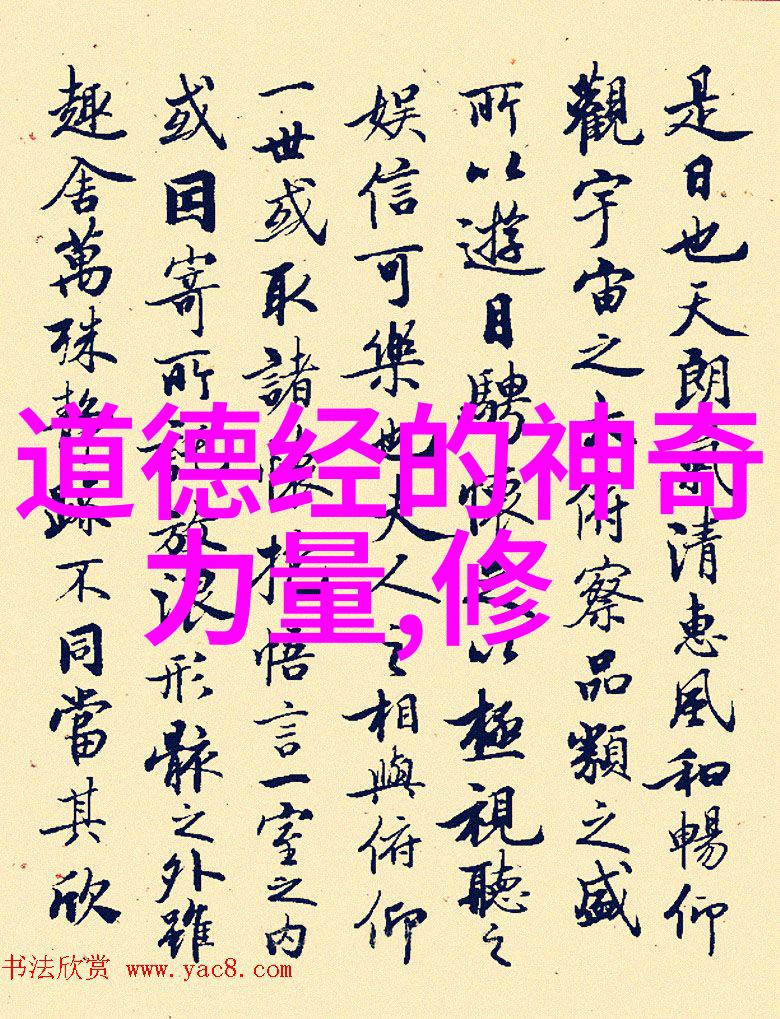 是日也天朗氣清惠風和暢仰
觀宇宙之大俯察品類之盛
所以遊目騁懷足以極視聽之
娛信可樂也夫人之相與俯仰
一世或取諸懷抱悟言一室之內
或因寄所託放浪形骸之外雖
趣舍萬殊靜躁不同當其欣
道德经的神奇
力量,修
书法欣赏 www.yac8.com